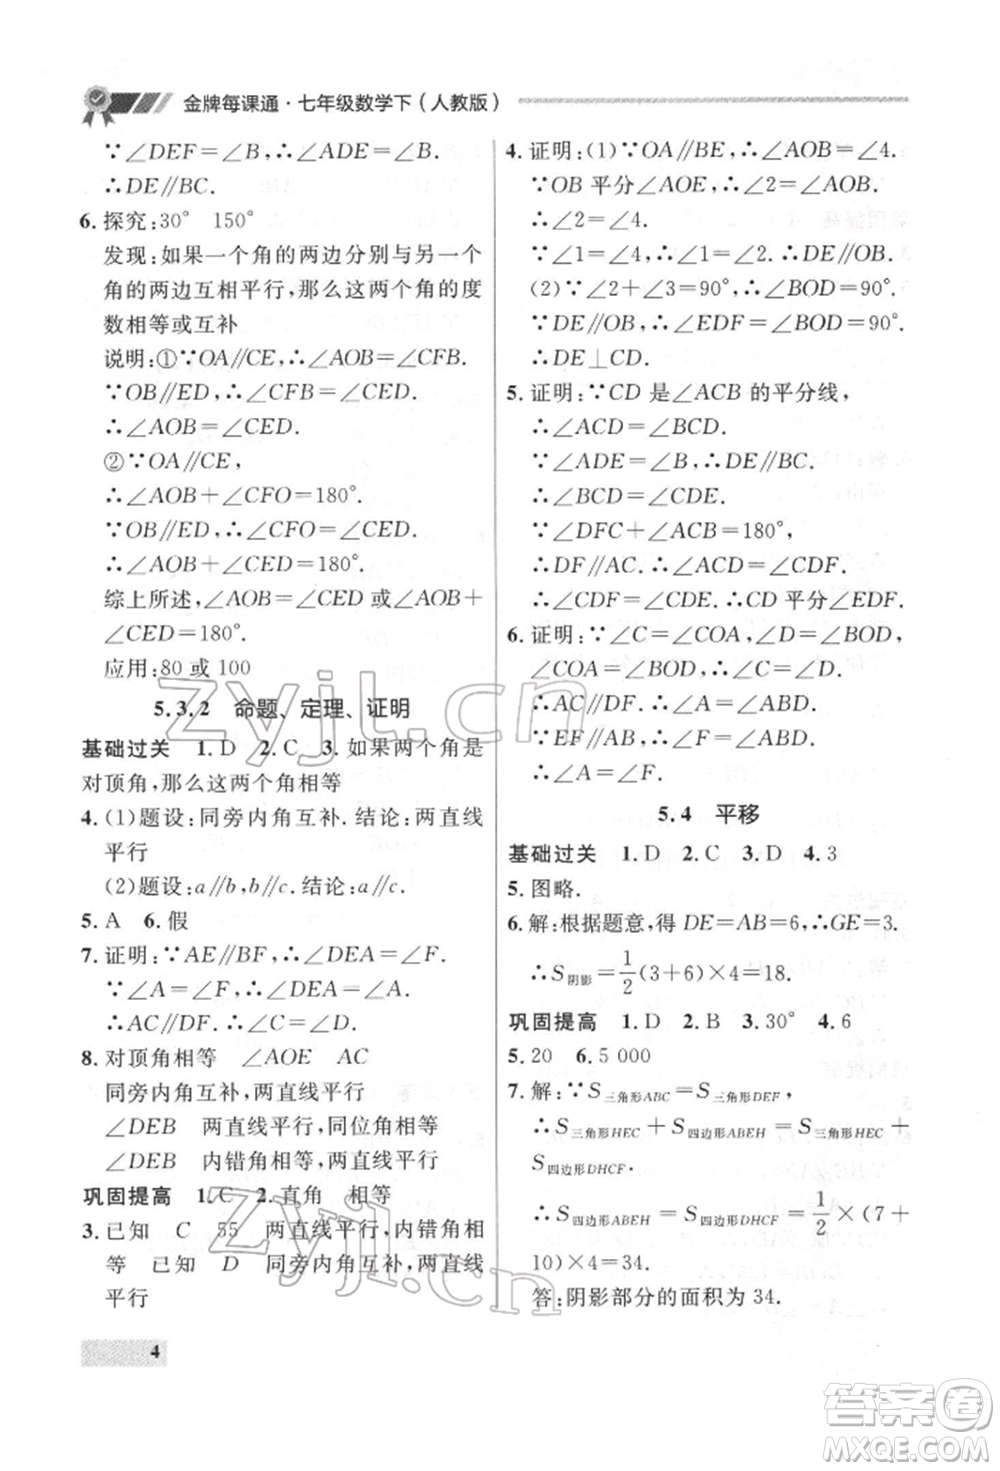 金牌每课通·七年级数学下（人教版）
∵∠DEF=∠B,∴∠ADE=∠B.
∴DE∥BC.
6. 探究:30° 150°
发现:如果一个角的两边分别与另一个
角的两边互相平行,那么这两个角的度
数相等或互补
说明:①∵OA∥CE,∴∠AOB=∠CFB.
∵OB∥ED,∴∠CFB=∠CED.
∴∠AOB=∠CED.
②∵OA∥CE,
∴∠AOB+∠CFO=180°.
∵OB∥ED,∴∠CFO=∠CED.
∴∠AOB+∠CED=180°.
综上所述,∠AOB=∠CED或∠AOB+
∠CED=180°.
应用:80或100
5.3.2 命题、定理、证明
基础过关 1. D 2. C 3. 如果两个角是
对顶角,那么这两个角相等
4. (1)题设:同旁内角互补. 结论:两直线
平行
(2)题设:a∥b,b∥c. 结论:a∥c.
5. A 6. 假
7. 证明:∵AE∥BF,∴∠DEA=∠F.
∵∠A=∠F,∴∠DEA=∠A.
∴AC∥DF.∴∠C=∠D.
8. 对顶角相等 ∠AOE AC
同旁内角互补,两直线平行
∠DEB 两直线平行,同位角相等
∠DEB 内错角相等,两直线平行
巩固提高 1. C 2. 直角 相等
3. 已知 C 55 两直线平行,内错角相
等 已知 D 同旁内角互补,两直线
平行
4. 证明:(1)∵OA∥BE,∴∠AOB=∠4.
∵OB平分∠AOE,∴∠2=∠AOB.
∴∠2=∠4.
∵∠1=∠4,∴∠1=∠2.∴DE∥OB.
(2)∵∠2+∠3=90°,∴∠BOD=90°.
∵DE∥OB,∴∠EDF=∠BOD=90°.
∴DE⊥CD.
5. 证明:∵CD是∠ACB的平分线,
∴∠ACD=∠BCD.
∵∠ADE=∠B,∴DE∥BC.
∴∠BCD=∠CDE.
∵∠DFC+∠ACB=180°,
∴DF∥AC.∴∠ACD=∠CDF.
∴∠CDF=∠CDE.∴CD平分∠EDF.
6. 证明:∵∠C=∠COA,∠D=∠BOD,
∠COA=∠BOD,∴∠C=∠D.
∴AC∥DF.∴∠A=∠ABD.
∵EF∥AB,∴∠F=∠ABD.
∴∠A=∠F.
5.4 平移
基础过关 1. D 2. C 3. D 4. 3
5. 图略.
6. 解:根据题意,得DE=AB=6,∴GE=3.
∴S阴影=1/2(3+6)×4=18.
巩固提高 1. D 2. B 3. 30° 4. 6
5. 20 6. 5 000
7. 解:∵S三角形ABC=S三角形DEF,
∴S三角形HEC+S四边形ABEH=S三角形HEC+
S四边形DHCF.
∴S四边形ABEH=S四边形DHCF=1/2×(7+
10)×4=34.
答:阴影部分的面积为34.
4
zyjl.cn
zyjl.cn
答案圈
MXQE.COM